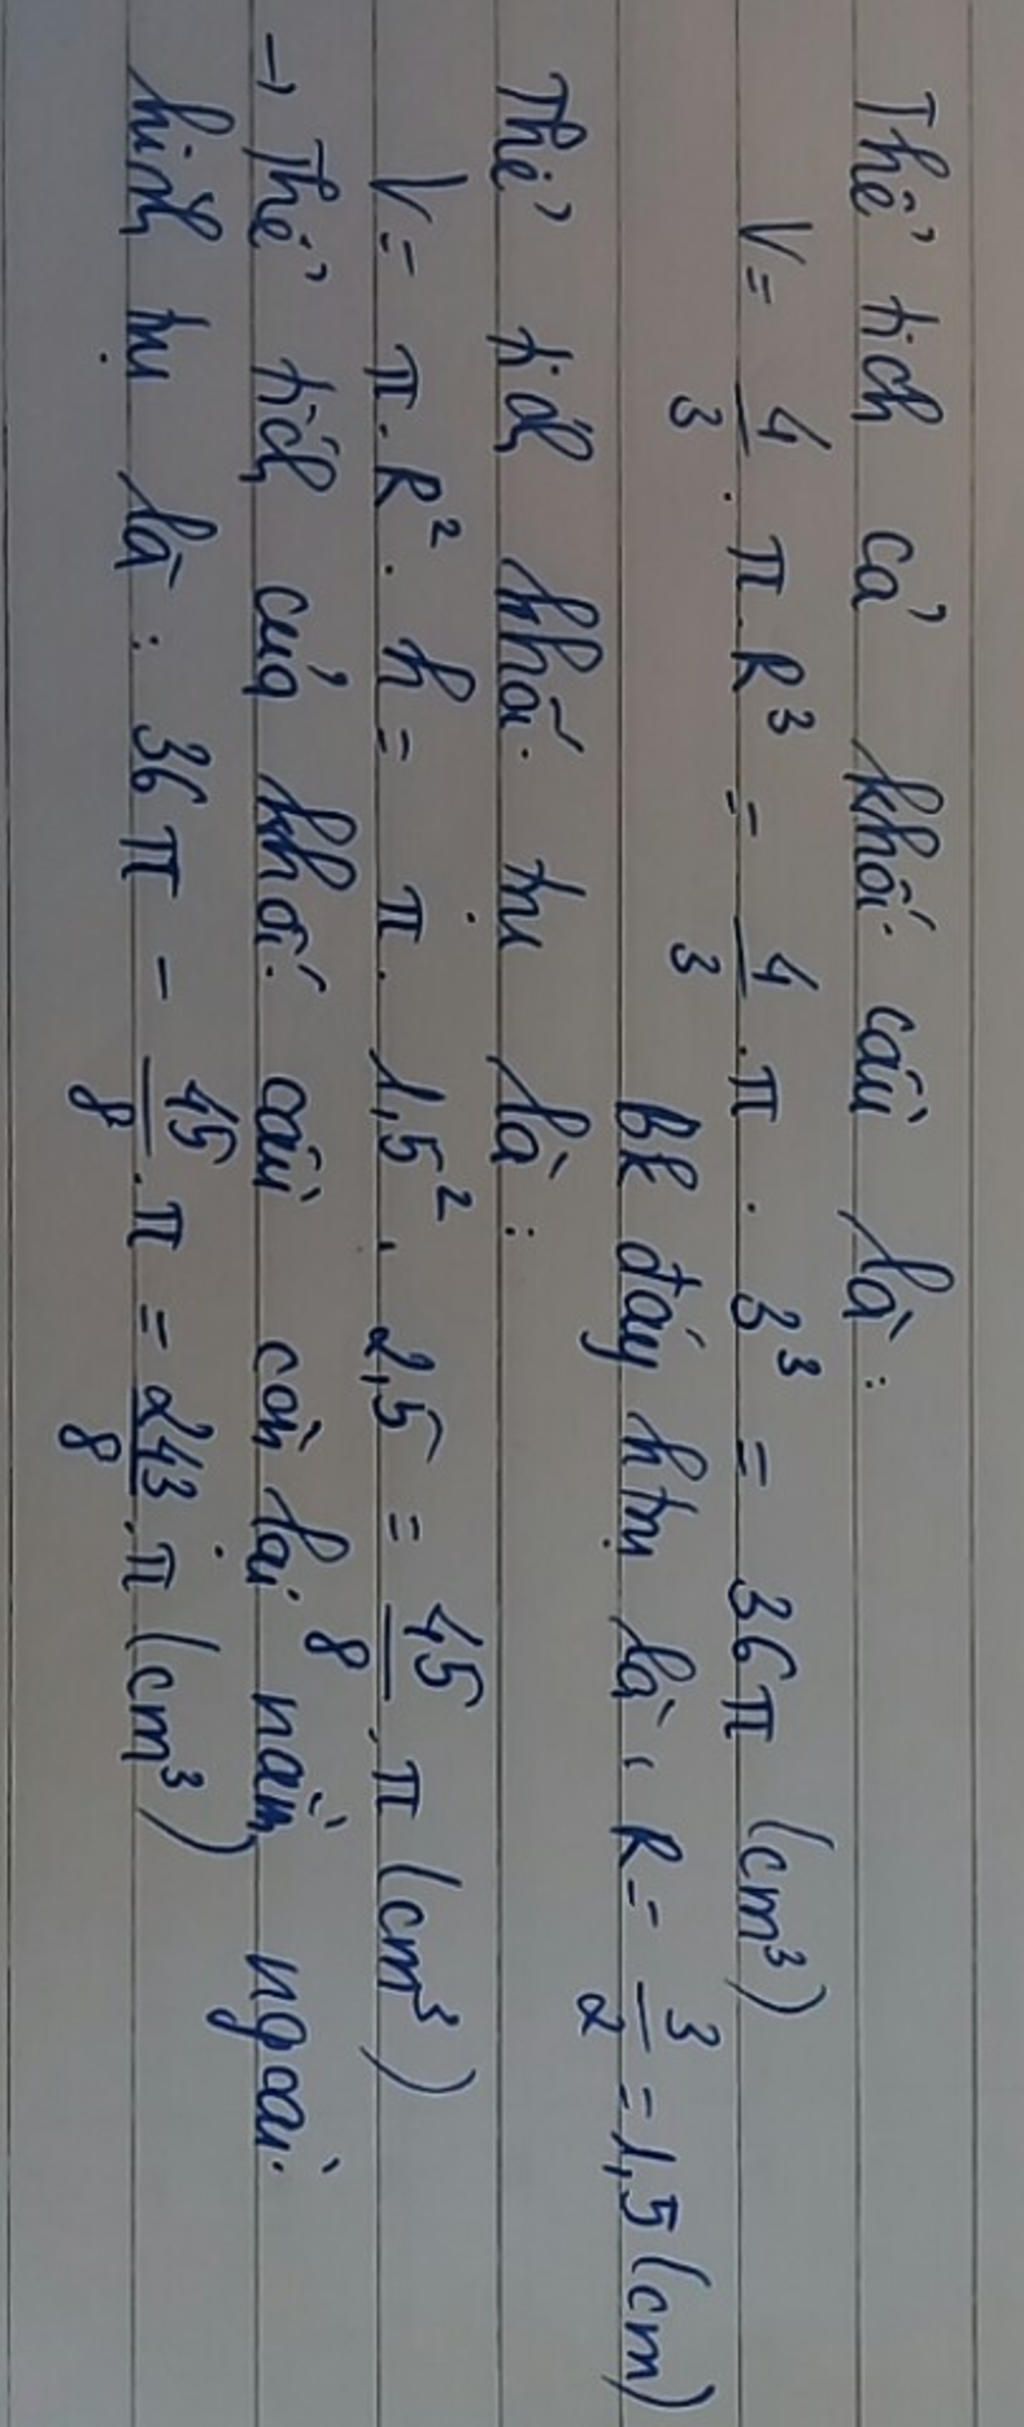 Thể tích cả khối cầu là :
V = 4/3 . π . R³ = 4/3 . π . 3³ = 36π (cm³)
bk đáy htrụ là : R = 3/2 = 1,5 (cm)
Thể tích khối trụ là :
V = π . R² . h = π . 1,5² . 2,5 = 45/8 . π (cm³)
→ Thể tích của khối cầu còn lại nằm ngoài
hình trụ là : 36π - 45/8 . π = 243/8 . π (cm³)